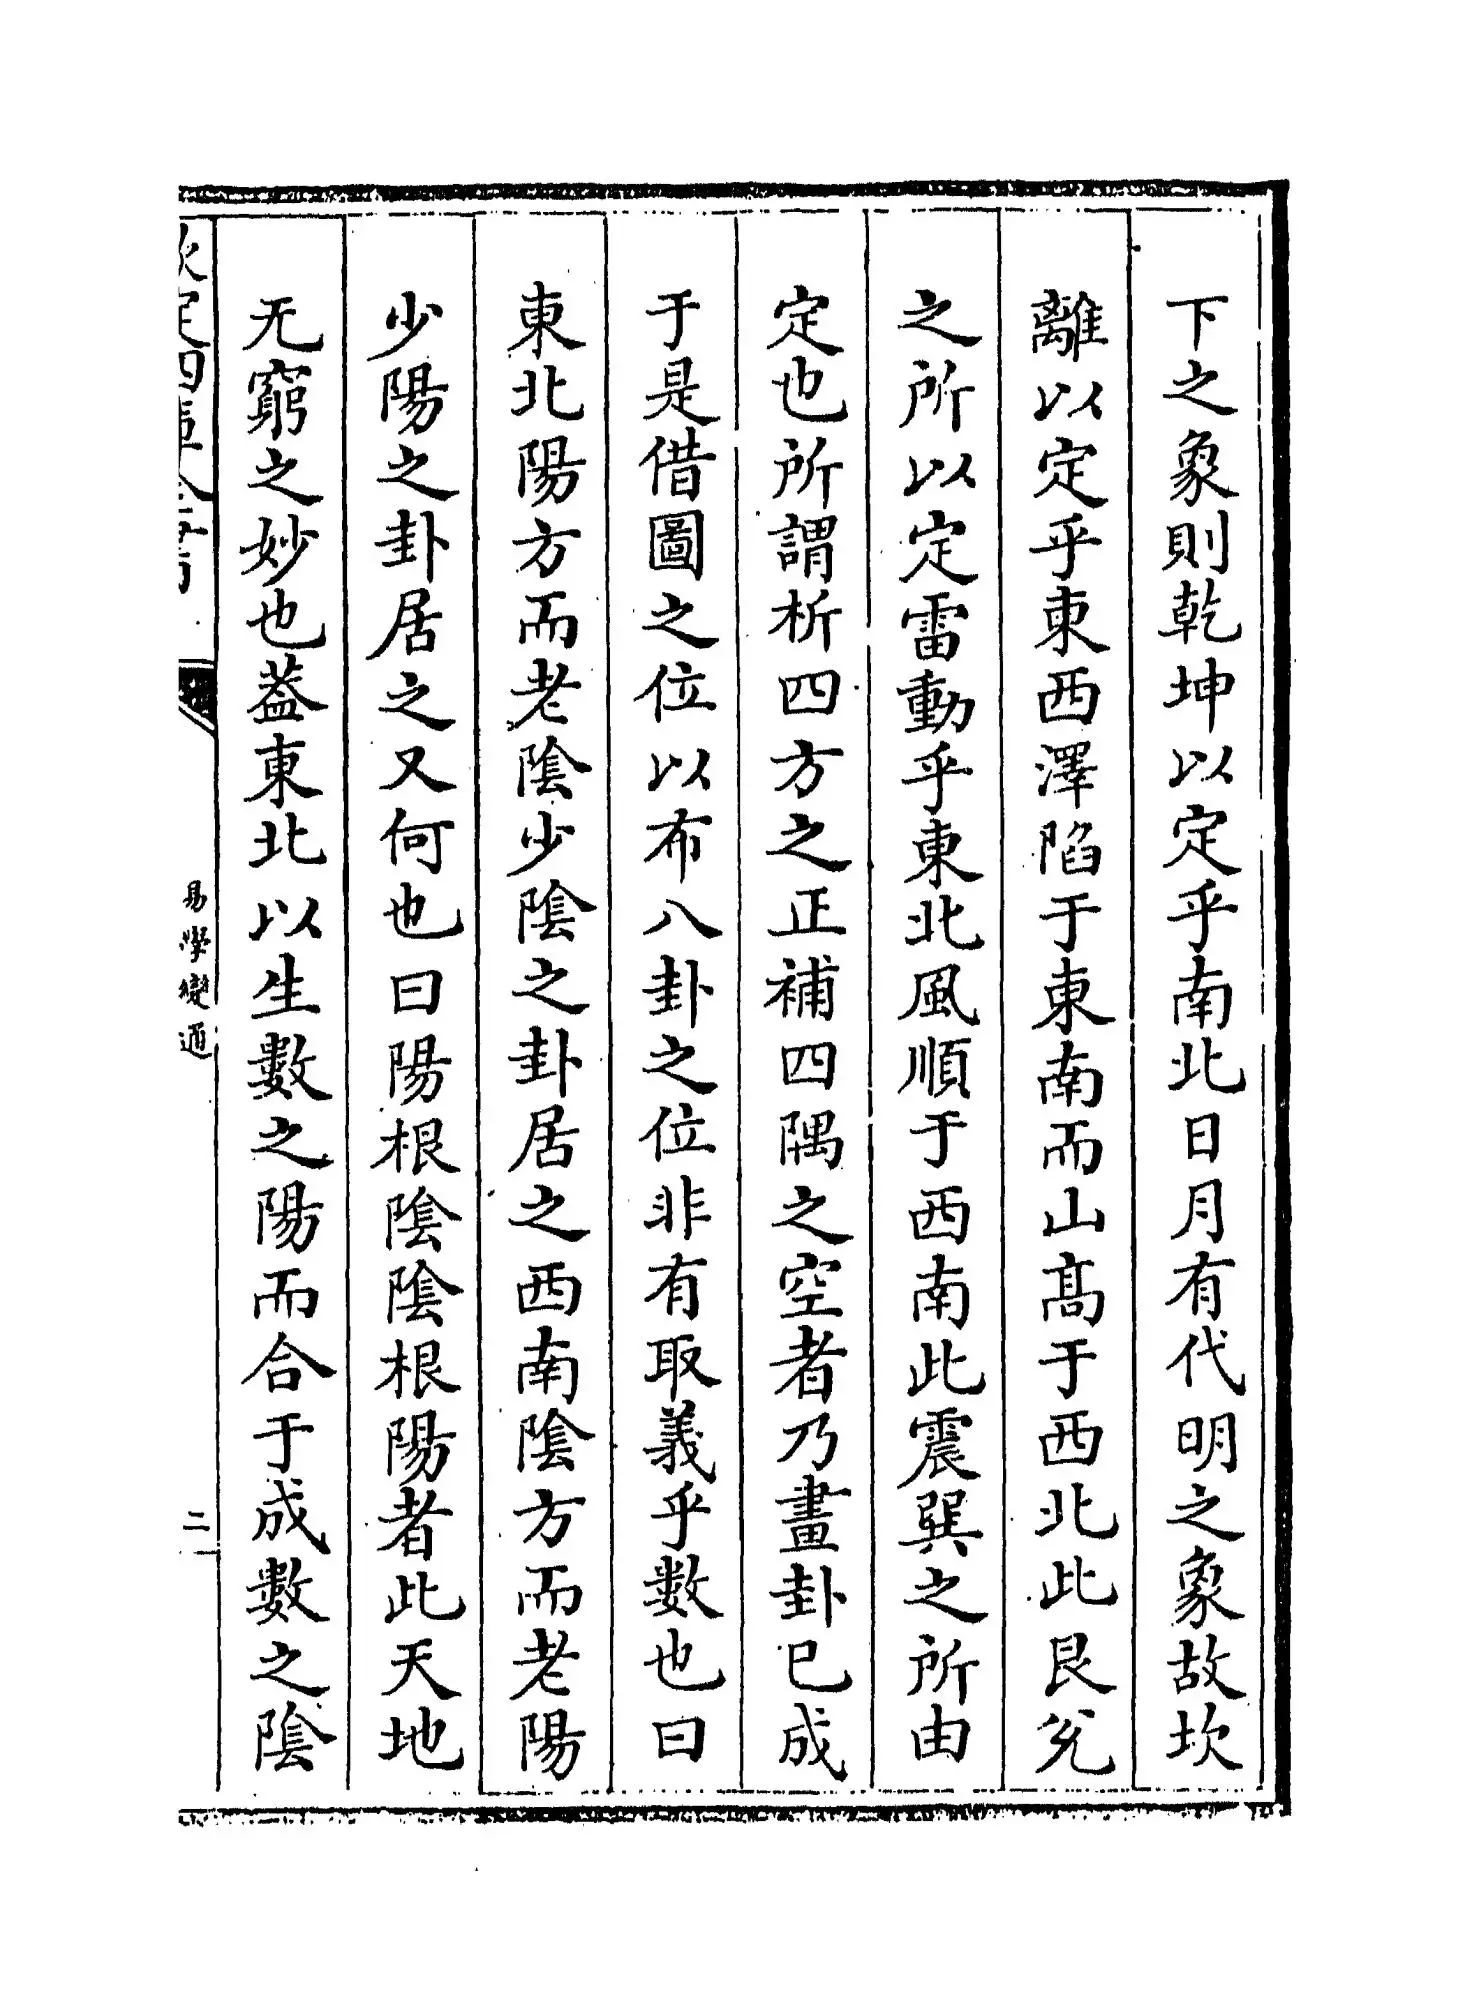 下之象則乾坤以定乎南北日月有代明之象故坎
離以定乎東西澤陷于東南而山髙于西北此艮兊
之所以定雷動乎東北風順于西南此震巽之所由
定也所謂析四方之正補四隅之空者乃畫卦已成
于是借圖之位以布八卦之位非有取義乎數也曰
東北陽方而老陰少陰之卦居之西南陰方而老陽
少陽之卦居之又何也曰陽根陰陰根陽者此天地
无窮之妙也葢東北以生數之陽而合于成數之陰
欽定四庫全書
易學變通
二